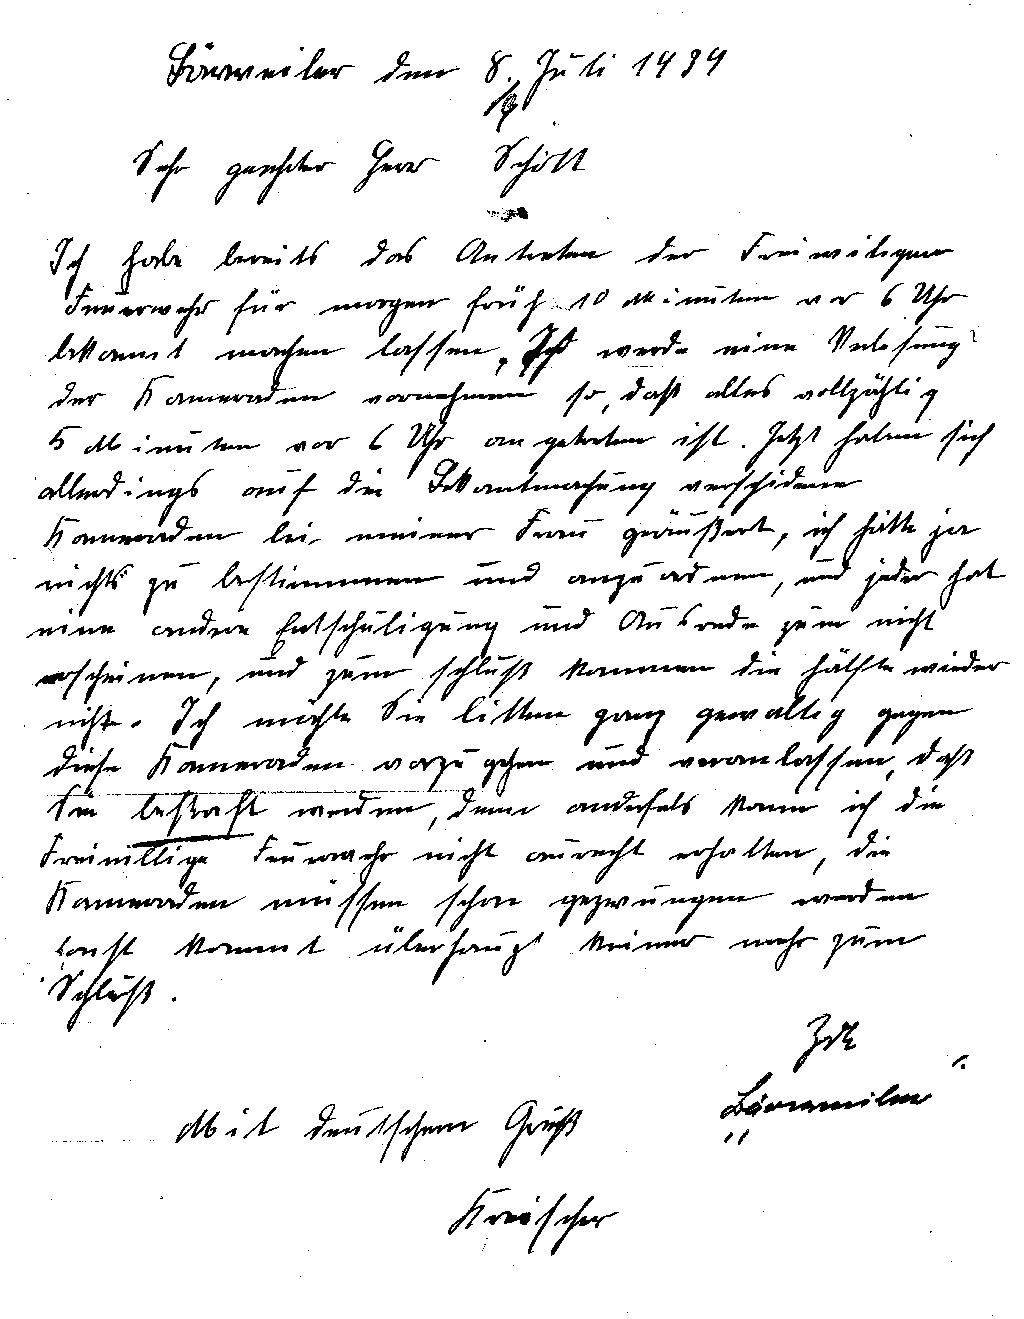 Bärweiler den 8. Juli 1939
Sehr geehrter Herr Schött
Ich habe bereits das Antreten der Freiwiligen
Feuerwehr für morgen früh 10 Minuten vor 6 Uhr
bekannt machen lassen, Ich werde eine Verlesung
der Kameraden vornehmen so, daß alles vollzählig
5 Minuten vor 6 Uhr angetreten ist. Jetzt haben sich
allerdings auf die Bekantmachung verschidene
Kameraden bei meiner Frau geäußert, ich hätte ja
nichts zu bestimmen und anzuordnen, und jeder hat
eine andere Entschuligung und Ausrede zum nicht
erscheinen, und zum schluß kommen die hälfte wieder
nicht. Ich möchte Sie bitten ganz gewaltig gegen
diese Kameraden vorzugehen und veranlassen, daß
Sie bestraft werden, denn anderfals kann ich die
Freiwillige Feuerwehr nicht aufrecht erhalten, die
Kameraden müssen schon gezwungen werden
sonst kommt überhaupt keiner mehr zum
Schluß.
Bärweiler
Mit deutschem Gruß
Kreischer